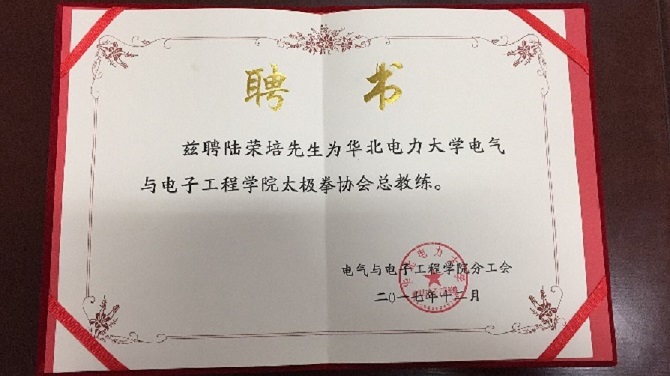 聘书
兹聘陆荣培先生为华北电力大学电气
与电子工程学院太极拳协会总教练。
电气与电子工程学院分工会
二〇一七年十二月